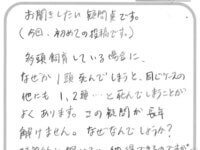 お聞きしたい疑問点です。
(今回、初めての投稿です。)
多頭飼育している場合に、
なぜか1頭死んでしまうと、同じケースの
他にも1、2頭…と死んでしまうことが
よくあります。この疑問が長年
解けません。なぜなんでしょうか?